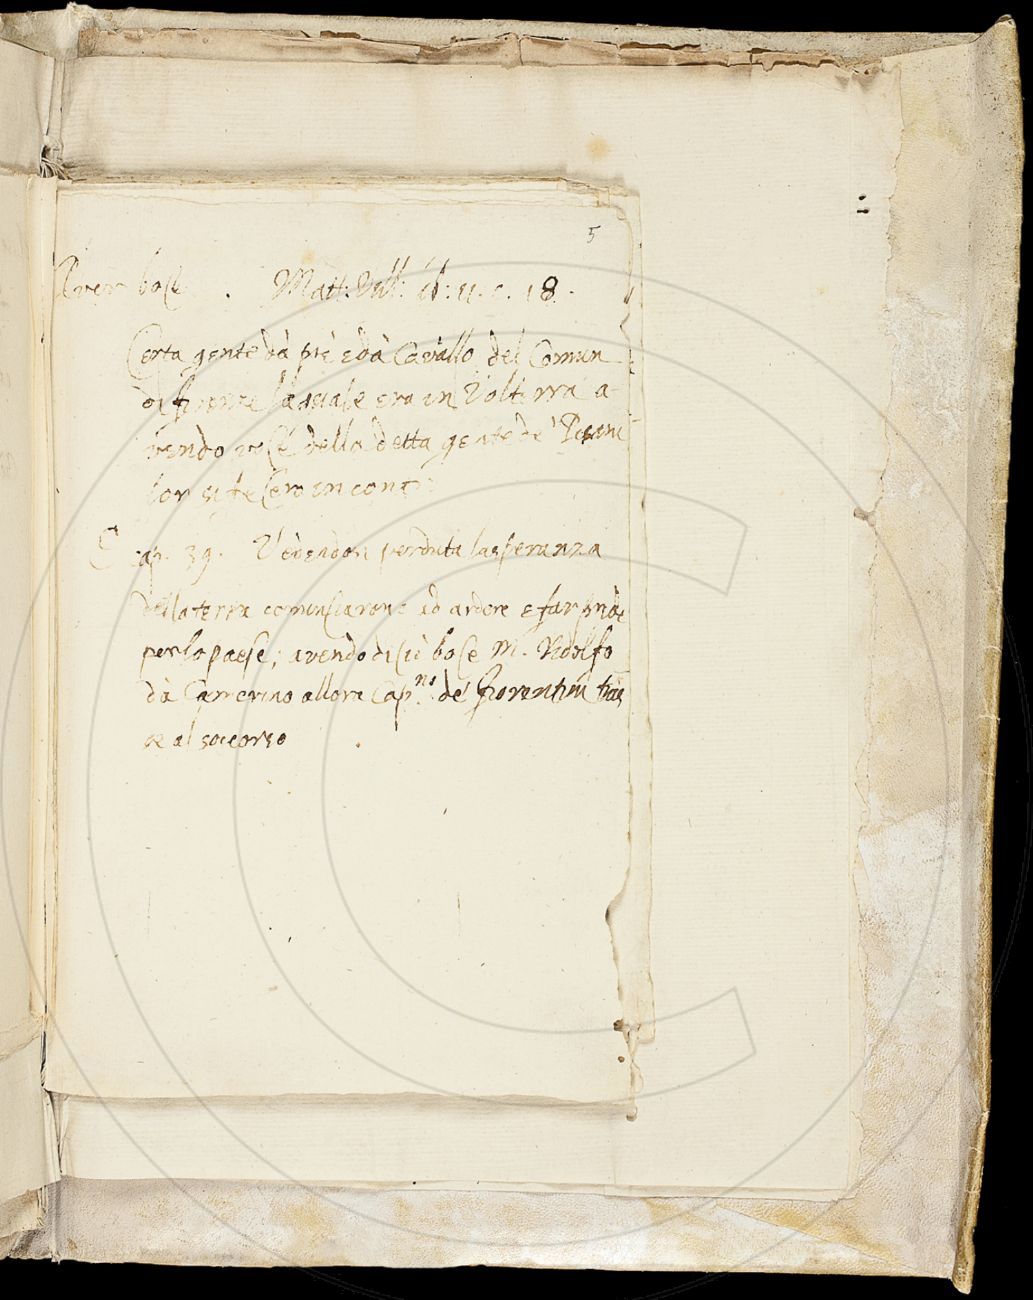 5
Aver boce. Matt. Vill. lib: 11. c. 18.
Certa gente dà piè e dà Cavallo del Comun
di firenze laquale era in Volterra a-
vendo voce della detta gente de' Pisani
lor si fecero incont
E cap. 39. Vedendosi perduta la speranza
della terra cominciarono ad ardere e far
per lo paese; avendo di ciò boce M. Ridolfo
dà Camerino allora Cap.no de' fiorentini
al soccorso